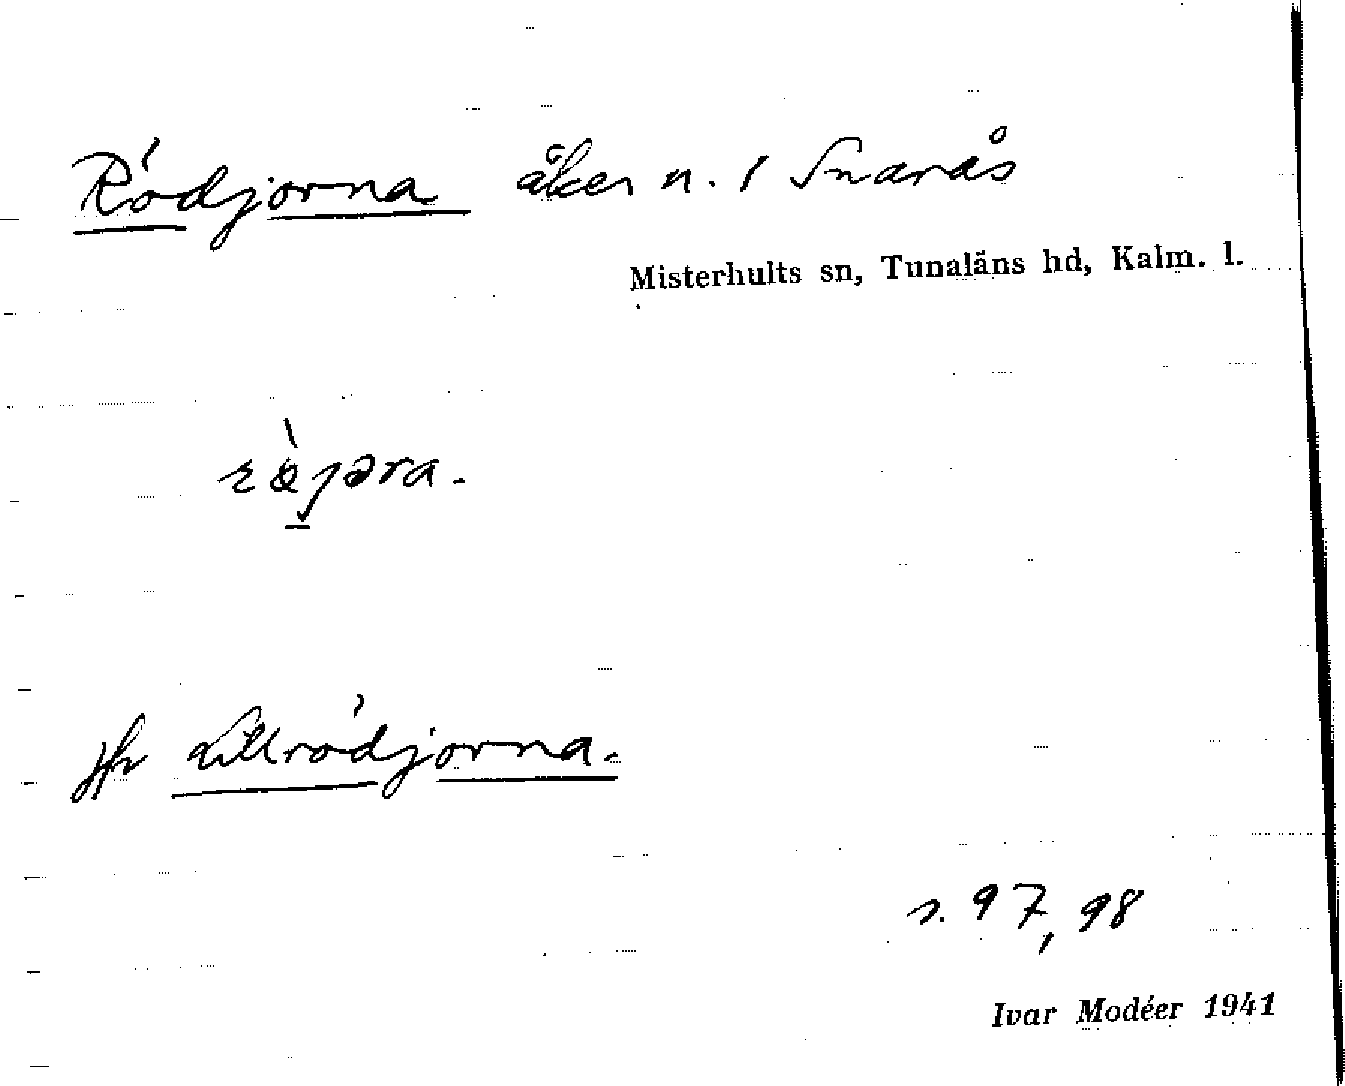 Rödjorna åker n. 1 Snarås
Misterhults sn, Tunaläns hd, Kalm. l.
jfr Lillrödjorna.
s. 97, 98
Ivar Modéer 1941